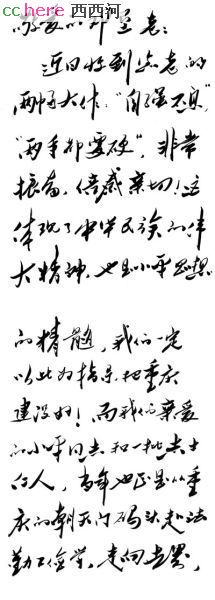 cchere 西西河
敬爱的郭老:
近日好到您老的
两幅大作:"自强不息"
"两手都要硬",非常
振奋,倍感亲切!这
体现了中华民族的伟
大精神,也是小平思想
的精髓,我们一定
以此为指导,把重庆
建设好!而我们亲爱
的小平同志和一批志士
仁人,当年也正是从重
庆的朝天门码头赴法
勤工俭学,走向世界,